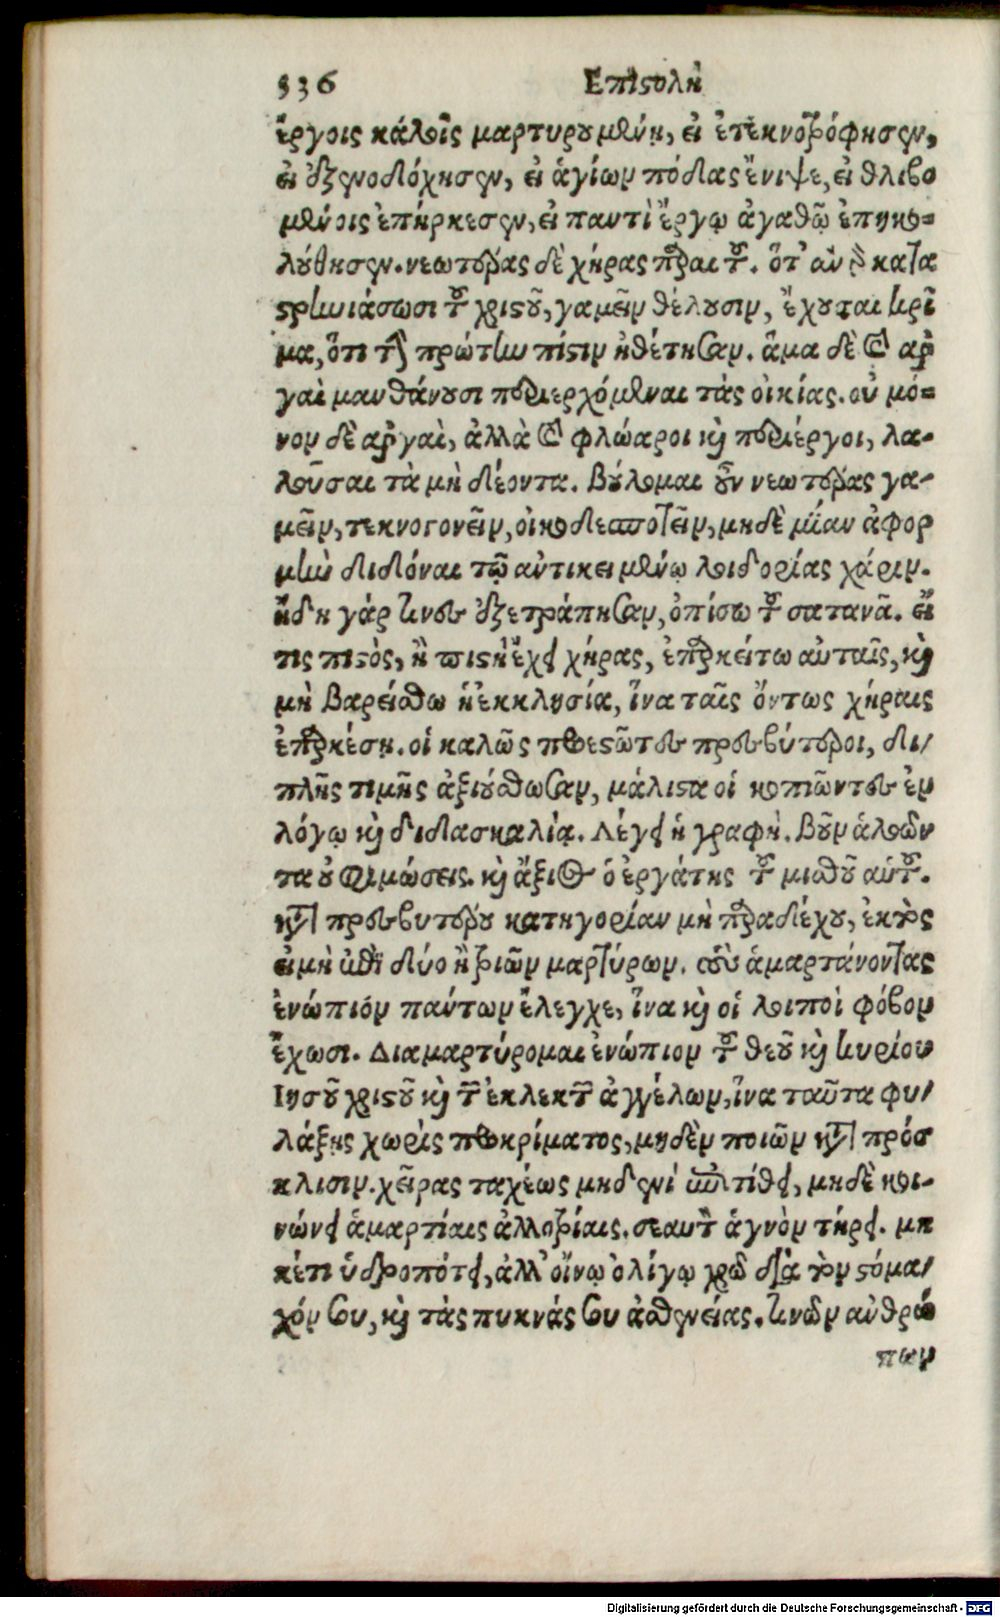 536 Επιστολὴ
ἔργοις κάλοῖς μαρτυρουμένη, εἰ ἐτεκνοτρόφησεν,
εἰ ἐξενοδόχησεν, εἰ ἁγίων πόδας ἔνιψε, εἰ θλιβο
μένοις ἐπήρκεσεν, εἰ παντὶ ἔργῳ ἀγαθῷ ἐπηκο=
λούθησεν. νεωτέρας δὲ χήρας παραιτοῦ. ὅτ' ἀν γὰρ κατα
στρηνιάσωσι τοῦ χριστοῦ, γαμεῖν θέλουσιν, ἔχουσαι κρῖ
μα, ὅτι τὴν πρώτην πίστιν ἠθέτησαν. ἅμα δὲ καὶ αρ
γαὶ μανθάνουσι περιερχόμεναι τὰς οἰκίας. οὐ μό=
νον δὲ αργαὶ, ἀλλὰ καὶ φλύαροι καὶ περιέργοι, λα-
λοῦσαι τὰ μὴ δέοντα. Βούλομαι οὖν νεωτέρας γα-
μεῖν, τεκνογονεῖν, οἰκοδεσποτεῖν, μηδὲ μίαν ἀφορ
μὴν διδόναι τῷ αὐτικειμένῳ λοιδορίας χάριν.
ἤδη γάρ τινες ἐξετράπησαν, ὀπίσω τοῦ σατανᾶ. εἴ
τις πιστὸς, ἢ πιστὴ ἔχει χήρας, ἐπαρκείτω αὐταῖς, καὶ
μὴ βαρείσθω ἡ ἐκκλησία, ἵνα ταῖς ὄντως χήραις
ἐπαρκέσῃ. οἱ καλῶς προεστῶτες πρεσβύτεροι, δι/
πλῆς τιμῆς ἀξιούσθωσαν, μάλιστα οἱ κοπιῶντες ἐν
λόγῳ καὶ διδασκαλίᾳ. Λέγει ἡ γραφὴ. Βοῦν ἀλοῶν
τα οὐ φιμώσεις. καὶ ἄξιος ὁ ἐργάτης τοῦ μισθοῦ αὑτοῦ.
κατὰ πρεσβυτέρου κατηγορίαν μὴ παραδέχου, ἐκτὸς
εἰ μὴ ἐπὶ δύο ἢ τριῶν μαρτύρων. τοὺς ἁμαρτάνοντας
ἐνώπιόν πάντων ἔλεγχε, ἵνα καὶ οἱ λοιποὶ φόβον
ἔχωσι. Διαμαρτύρομαι ἐνώπιον τοῦ θεοῦ καὶ κυρίου
Ιησοῦ χριστοῦ καὶ τῶν ἐκλεκτῶν ἀγγέλων, ἵνα ταῦτα φυ/
λάξῃς χωρὶς προκρίματος, μηδὲν ποιῶν κατὰ πρόσ
κλισιν. χεῖρας ταχέως μηδενί ἐπιτίθει, μηδὲ κοι-
νώνει ἁμαρτίαις ἀλλοτρίαις. σεαυτὸν ἁγνὸν τήρει. μη
κέτι ὑδροπότει, ἀλλ' οἴνῳ ὀλίγῳ χρῶ διὰ τὸν στόμα/
χόν σου, καὶ τὰς πυκνάς σου ἀσθενείας. τινῶν αὐθρώ
πων
Digitalisierung gefördert durch die Deutsche Forschungsgemeinschaft - DFG